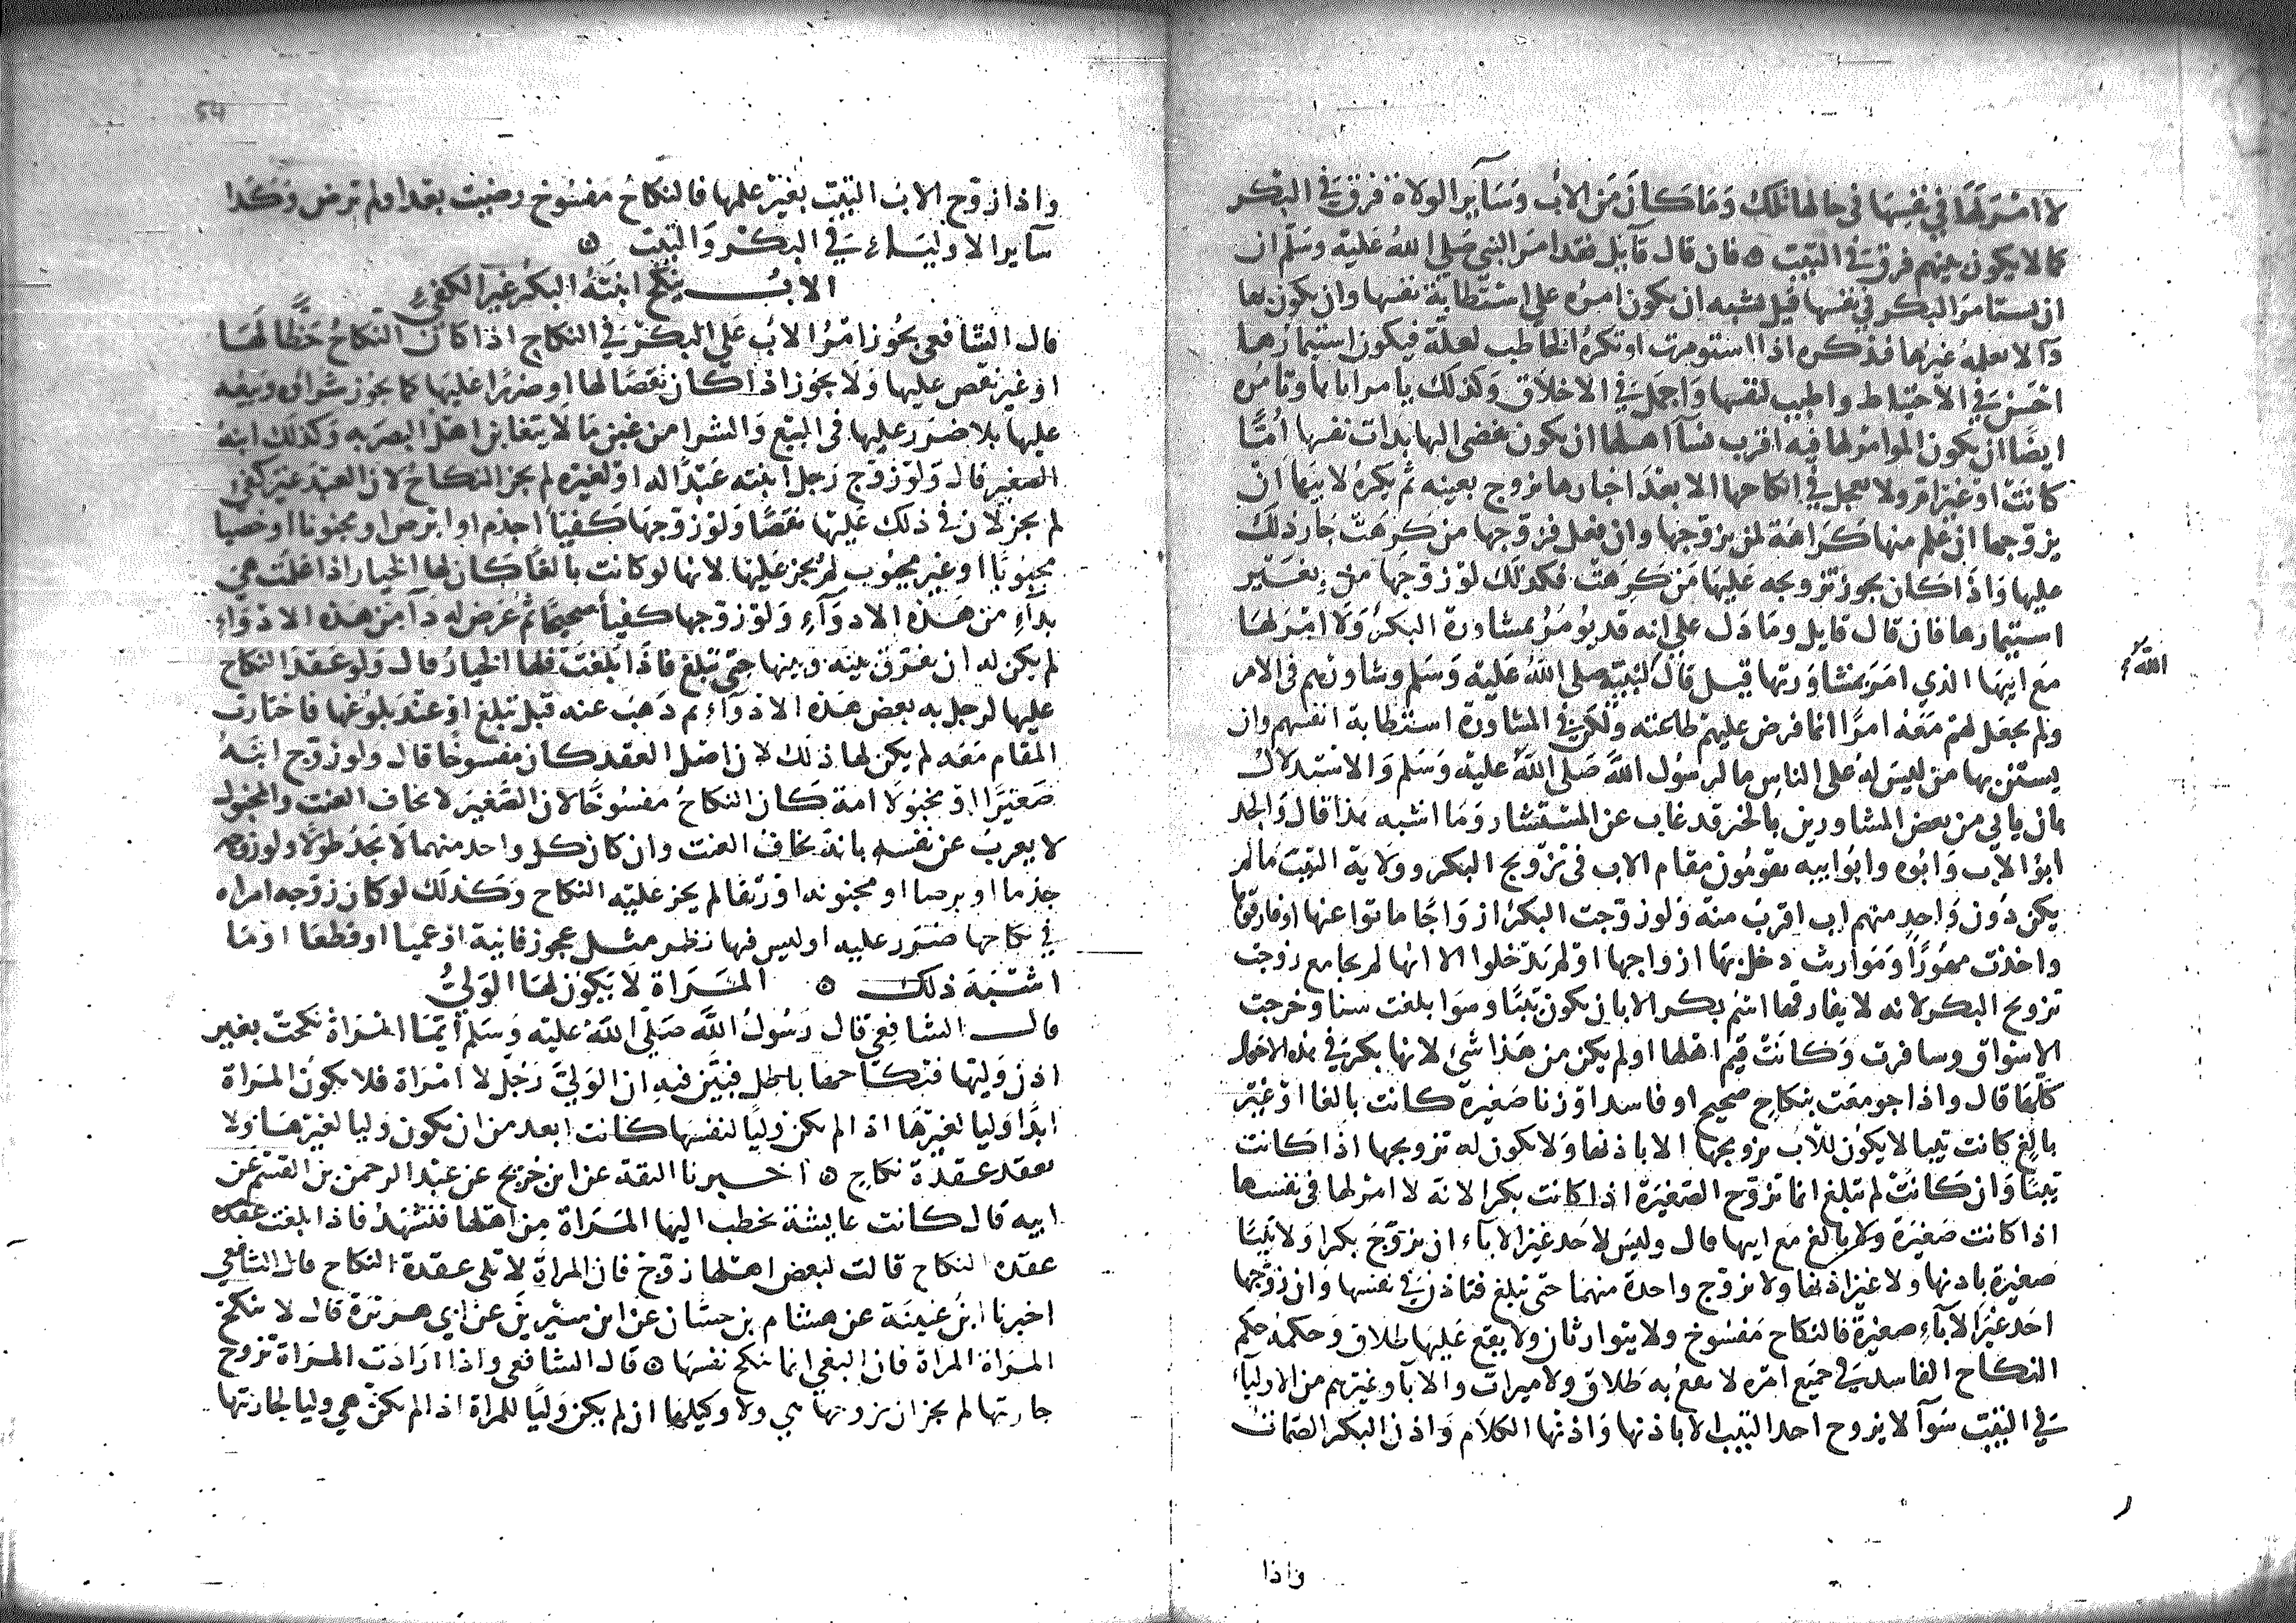 لا امر لها في نفسها في حالها تلك وما كان من الاب وساير الولاة فرق في البكر
كما لا يكون بينهم فرق في الثيب ه فان قال قايل فقد امر النبي صلى الله عليه وسلم ان
ان تستامر البكر في نفسها قيل يشبه ان يكون امره على استطابة نفسها وان يكون بها
دآ لا يعلمه غيرها فتذكره اذا استومرت او تكره الخاطب لعلة فيكون استيمارها
احسن في الاحتياط واطيب لنفسها واجمل في الاخلاق وكذلك يامر اباها وتامره
ايضا ان يكون الموامر لها فيه اقرب نسآ اهلها ان يكون تفضي اليها بذات نفسها أمًّا
كانت او غير ام ولا يعجل في انكاحها الا بعد اخبارها بزوج بعينه ثم يكره لابيها ان
يزوجها ان علم منها كراهة لمن يزوجها وان فعل فزوجها من كرهت جاز ذلك
عليها واذا كان يجوز تزويجه عليها من كرهت فكذلك لو زوجها من بغير
استيمارها فان قال قايل وما دل على انه قد يومر بمشاورة البكر ولا امر لها
مع ابيها الذي امر بمشاورتها قيل قال لنبيه صلى الله عليه وسلم وشاورهم في الامر
الله
ولم يجعل لهم معه امرا انما فرض عليهم طاعته ولكن في المشاورة استطابة انفسهم وان
يستن بها من ليس له على الناس ما لرسول الله صلى الله عليه وسلم والاستدلال
بان ياتي من بعض المشاورين بالخير قد غاب عن المستشار وما اشبه هذا قال والجد
ابو الاب وابوه وابو ابيه يقومون مقام الاب في تزويج البكر وولاية الثيب ما لم
يكن دون واحد منهم اب اقرب منه ولو زوجت البكر ازواجا ماتوا عنها او فارقوها
واخذت مهورا ومواريث دخل بها ازواجها او لم يدخلوا الا انها لم تجامع زوجت
تزويج البكر لانه لا يفارقها اسم بكر الا بان تكون ثيبا وسوا بلغت سنا وخرجت
الاسواق وسافرت وكانت قيم اهلها او لم يكن من هذا شئ لانها بكر في هذه الاحوال
كلها قال واذا جومعت بنكاح صحيح او فاسد او زنا صغيرة كانت بالغا او غير
بالغ كانت ثيبا لا يكون للاب تزويجها الا باذنها ولا يكون له تزويجها اذا كانت
ثيبا وان كانت لم تبلغ انما تزوج الصغيرة اذا كانت بكرا لانه لا امر لها في نفسها
اذا كانت صغيرة ولا بالغ مع ابيها قال وليس لاحد غير الاباء ان يزوج بكرا ولا ثيبا
صغيرة باذنها ولا غير اذنها ولا تزوج واحدة منهما حتى تبلغ فتاذن في نفسها وان زوجها
احد غير الاباء صغيرة فالنكاح مفسوخ ولا يتوارثان ولا يقع عليها طلاق وحكمه حكم
النكاح الفاسد في جميع امره لا يقع به طلاق ولا ميراث والابا وغيرهم من الاولياء
في الثيب سوآ لا يزوج احد الثيب الا باذنها واذنها الكلام واذن البكر الصمات
واذا
واذا زوج الاب الثيب بغير علمها فالنكاح مفسوخ رضيت بعد او لم ترض وكذا
سآير الاولياء في البكر والثيب ه
الاب ينكح ابنته البكر غير الكفئ
قال الشافعي يجوز امر الاب على البكر في النكاح اذا كان النكاح حظا لها
او غير نقص عليها ولا يجوز اذا كان نقصا لها او ضررا عليها كما يجوز شراؤه وبيعه
عليها بلا ضرر عليها في البيع والشرا من غبن ما لا يتغابن اهل البصر به وكذلك ابنه
الصغير قال ولو زوج رجل ابنته عبدا له او لغيره لم يجز النكاح لان العبد غير كفئ
لم يجز لان في ذلك عليها نقصا ولو زوجها كفيئا اجذم او ابرص او مجنونا او خصيا
مجبوبا او غير مجبوب لم يجز عليها لانها لو كانت بالغا كان لها الخيار اذا علمت هي
بداء من هذه الادوآء ولو زوجها كفيأ صحيحا ثم عرض له دآ من هذه الادواء
لم يكن له ان يفرق بينه وبينها حتى تبلغ فاذا بلغت فلها الخيار قال ولو عقد النكاح
عليها لرجل به بعض هذه الادوآء ثم ذهب عنه قبل تبلغ او عند بلوغها فاختارت
المقام معه لم يكن لها ذلك لان اصل العقد كان مفسوخا قال ولو زوج ابنه
صغيرا او مخبولا امة كان النكاح مفسوخا لان الصغير لا يخاف العنت والمخبول
لا يعرب عن نفسه بانه يخاف العنت وان كان كل واحد منهما لا يجد طولا ولو زوجه
جذما او برصا او مجنونه او رتقا لم يجز عليه النكاح وكذلك لو كان زوجه امراه
في نكاحها ضرر عليه او ليس فيها نظر مثل عجوز فانية او عميا او قطعا او ما
اشبه ذلك ه المراة لا يكون لها الولي
قال الشافعي قال رسول الله صلى الله عليه وسلم أيما امراة نكحت بغير
اذن وليها فنكاحها باطل فبين فيه ان الولي رجل لا امراة فلا يكون المراة
ابدا وليا لغيرها اذا لم يكن وليا لنفسها كانت ابعد من ان يكون وليا لغيرها ولا
تعقد عقدة نكاح ه اخبرنا الثقة عن ابن جريج عن عبد الرحمن بن القسم عن
ابيه قال كانت عايشة تخطب اليها المراة من اهلها فتشهد فاذا بلغت عقده
عقده النكاح قالت لبعض اهلها زوج فان المراة لا تلي عقدة النكاح قال الشافعي
اخبرنا ابن عيينة عن هشام بن حسان عن ابن سيرين عن ابي هريرة قال لا تنكح
المراة المراة فان البغي انما تنكح نفسها ه قال الشافعي واذا ارادت المراة تزوج
جاريتها لم يجز ان تزوجها هي ولا وكيلها ان لم يكن وليا للمراة اذا لم تكن هي وليا لجاريتها